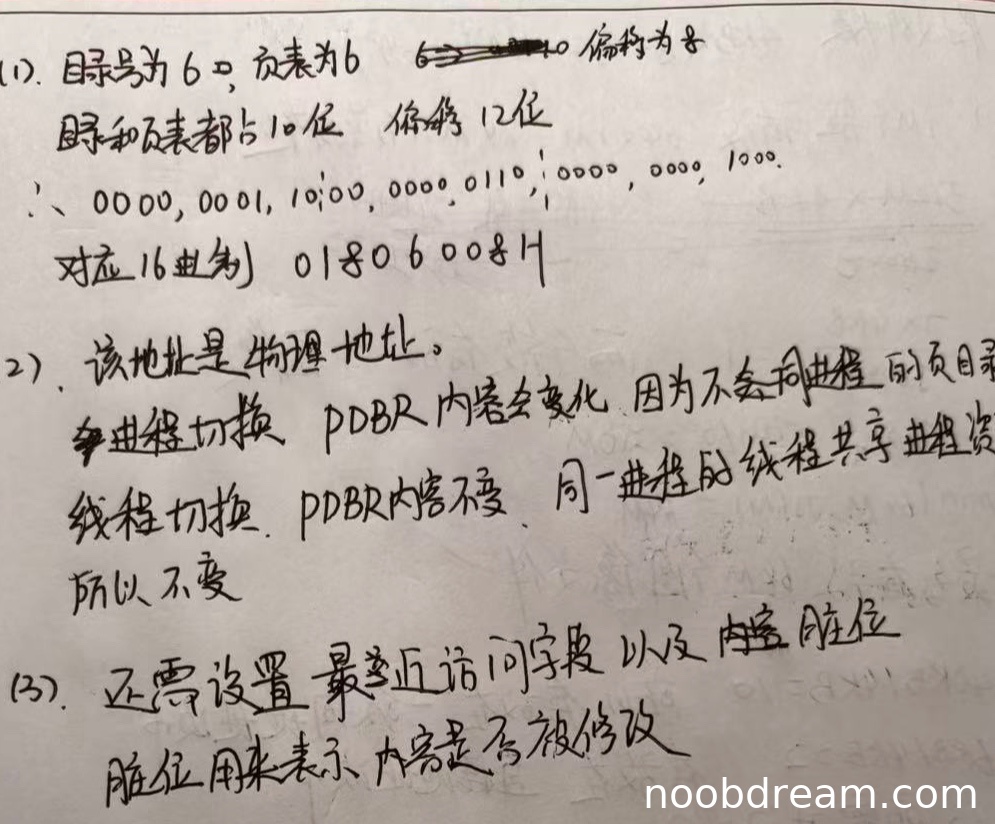 (1). 目录号为6, 页表为6 偏移为8
目录和页表都占10位 偏移12位
∴ 0000, 0001, 10 00, 0000, 0110, 0000, 0000, 1000.
对应16进制 01806008H
2). 该地址是物理地址。
进程切换 PDBR内容会变化 因为不会同进程的页目录
线程切换. PDBR内容不变. 同一进程的线程共享进程资
所以不变
(3). 还需设置最近访问字段以及 脏位
脏位用来表示内容是否被修改
noobdream.com